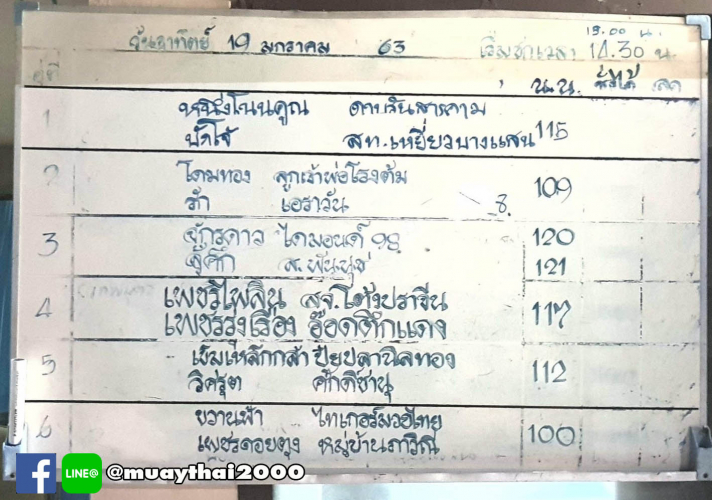 วันอาทิตย์ 19 มกราคม 63 เริ่มชกเวลา 14.30 น.
13.00 น.
คู่ที่ น.น.
1 หนึ่งโนนคูณ
115
2 โดมทอง ลูกเจ้าพ่อโรงต้ม
เอราวัน 8. 109
3 จักรดาว ไดมอนด์ 98 120
ส.พันนุช 121
4 เพชรไพลิน สจ.โต้งปราจีน
เพชรรุ่งเรือง อ๊อดตึกแดง 117
5 เข็มเหล็กกล้า ปิยปลานิลทอง
วิศรุต ศักดิ์ชานุ 112
6 ขวานฟ้า ไทเกอร์มวยไทย
เพชรดอยตุง หมู่บ้านภาวิณี 100
LINE@ @muaythai2000